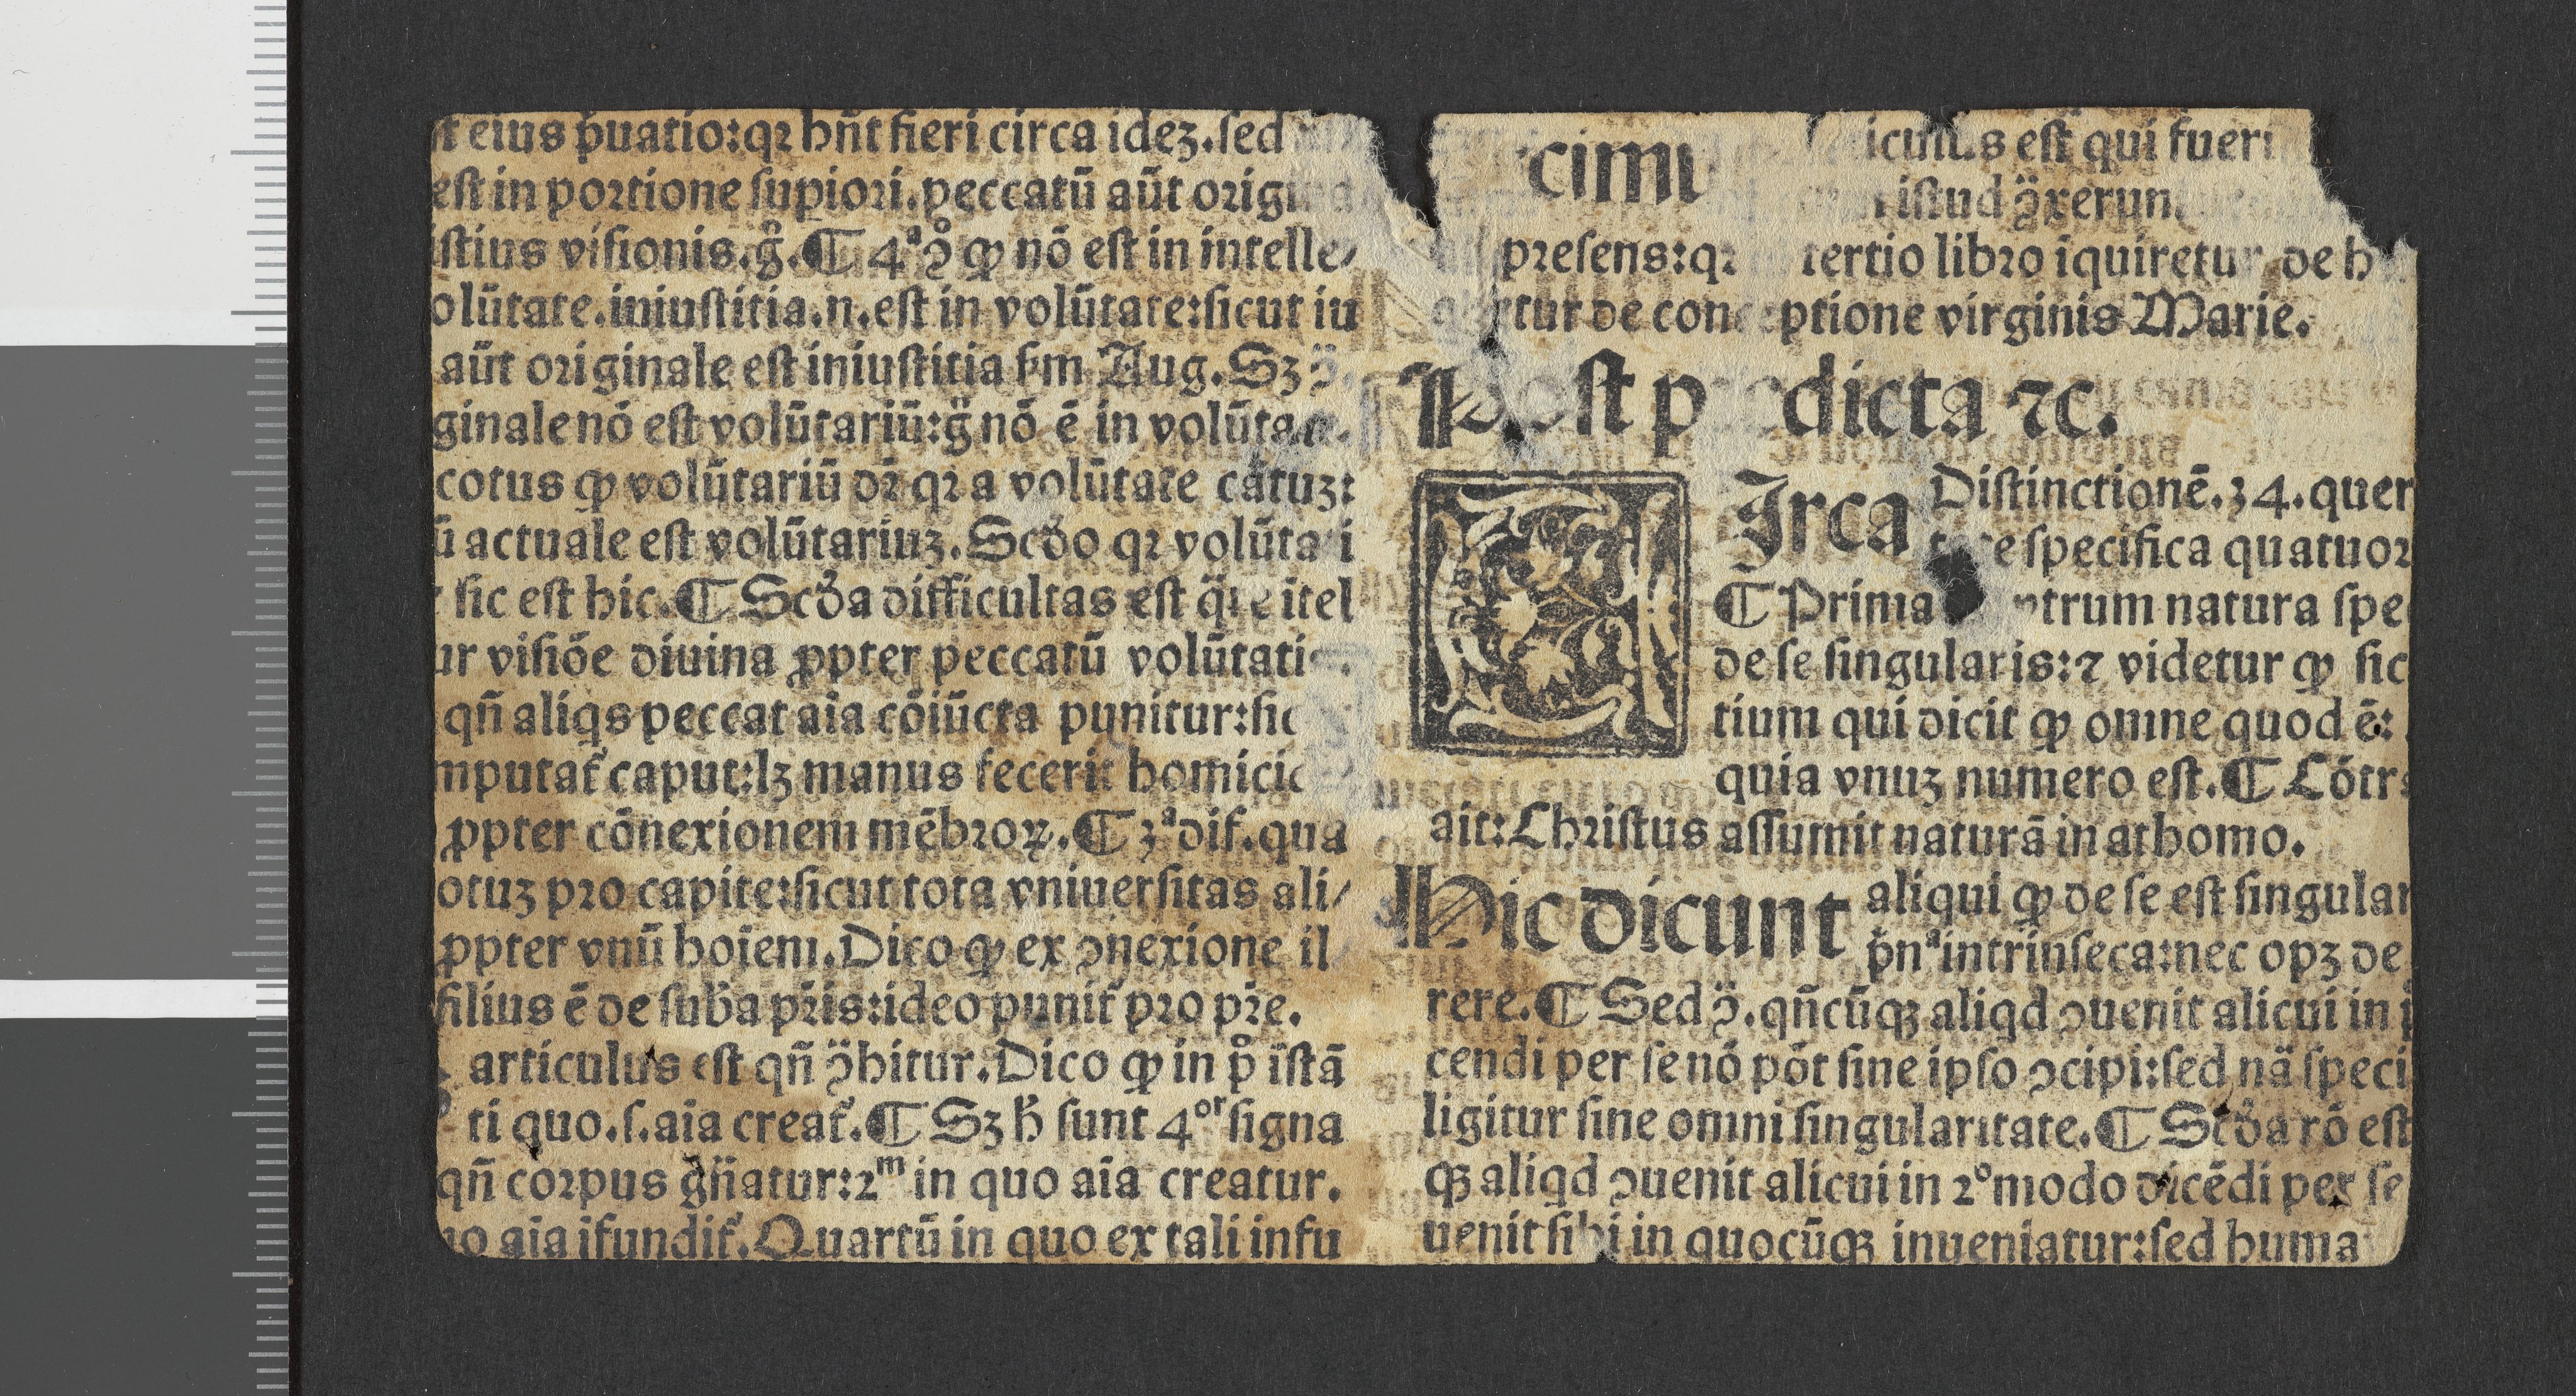 eius p̄uatio:qꝛ hn̄t fieri circa idez.ſed
eſt in poꝛtione ſupioꝛi.peccatū aūt oꝛigi
iſtius viſionis.g̊.¶ 4ᵃↄ̊ ꝙ nō eſt in intelle/
olūtate.iniuſtitia.n.eſt in volūtate:ſicut iu
aūt oꝛiginale eſt iniuſtitia ẜm Aug. Sꝫ ↄ̈.
ginale nō eſt volūtariū:g̈ nō ē in volūtate.
cotus ꝙ volūtariū dꝛ̄ qꝛ a volūtate cātuꝫ:
ū actuale eſt volūtariuꝫ. Scd̓o qꝛ volūta i
ſic eſt hic.¶ Scd̓a difficultas eſt itel
ur viſiōe diuina ꝓpter peccatū volūtatis.
qn̄ aliqs peccat aīa cōiūcta punitur:ſic
mputat᷑ caput:lꝫ manus fecerit homicid
ꝓpter cōnexionem mēbꝛoꝝ.¶ 3ᵃ dif. qua
otuꝫ pꝛo capite:ſicut tota vniuerſitas ali/
ꝓpter vnū hoīem. Dico ꝙ ex ↄnexione il
filius ē de ſub̄a pꝛ̄is:ideo punit᷑ pꝛo pꝛ̄e.
articulus eſt qn̄ ↄ̈hitur. Dico ꝙ in p̊ īſtā
ti quo.ſ.aīa creat᷑.¶ Sꝫ h̄ ſunt 4ᵒʳ ſigna
qn̄ coꝛpus gn̄atur:2ᵐ in quo aīa creatur.
uo aīa ifundit᷑. Quartū in quo ex tali infu
cimu
iculus eſt qui fueri
iſtud ↄ̈xerun
pꝛeſens:qꝛ tertio libꝛo iquiretur de h
tur de conceptione virginis Marie.
Poſt predicta ⁊c.
C Irca Diſtinctionē.34. quer
ſpecifica quatuoꝛ
¶ Prima vtrum natura ſpe
de ſe ſingularis:⁊ videtur ꝙ ſic
tium qui dicit ꝙ omne quod ē:
quia vnuꝫ numero eſt.¶ Cōtra
ait: Chꝛiſtus aſſumit naturā in athomo.
Hic dicunt aliqui ꝙ de ſe eſt ſingular
pn̄ᵃ intrinſeca:nec opꝫ de
rere.¶ Sed ↄ̈.qn̄cūqꝫ aliqd ↄuenit alicui in p
cendi per ſe nō pōt ſine ipſo ↄcipi:ſed nā ſpeci
ligitur ſine omni ſingularitate.¶ Scd̓a rō eſt
qꝫ aliqd ↄuenit alicui in 2ᵒ modo dicēdi per ſe
uenit ſibi in quocūqꝫ inueniatur:ſed huma